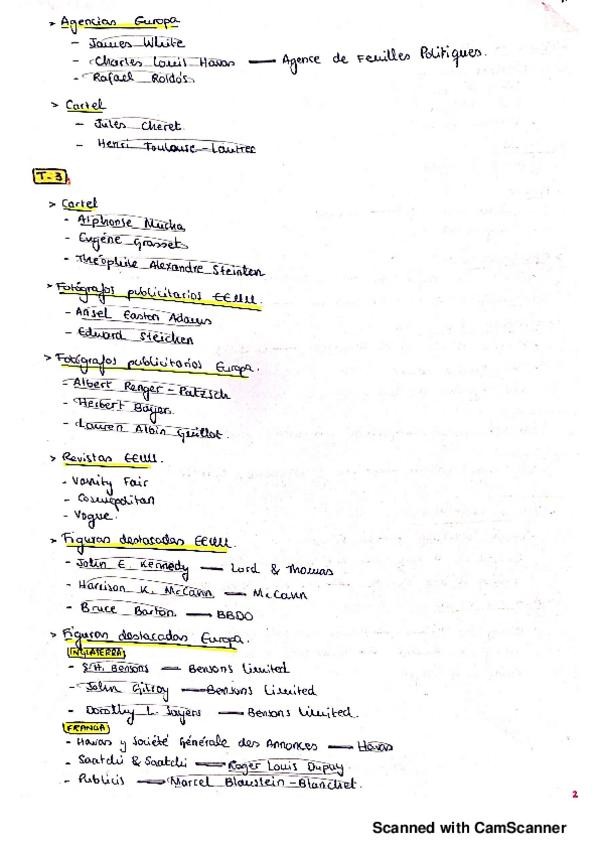 > Agencias Europa
- James White
- Charles Louis Havas — Agence de Feuilles Politiques.
- Rafael Roldós
> Cartel
- Jules Cheret
- Henri Toulouse-Lautrec
T-3
> Cartel
- Alphonse Mucha
- Eugéne Grasset
- Théophile Alexandre Steinlen
> Fotógrafos publicitarios EEUU.
- Ansel Easton Adams
- Edward Steichen
> Fotógrafos publicitarios Europa.
- Albert Renger-Patzsch
- Herbert Bayer
- Lauren Albin Guillot.
> Revistas EEUU.
- Vanity Fair
- Cosmopolitan
- Vogue.
> Figuras destacadas EEUU.
- John E. Kennedy — Lord & Thomas
- Harrison K. McCann — McCann
- Bruce Barton. — BBDO
> Figuras destacadas Europa.
INGLATERRA
- S.H. Bensons — Bensons Limited
- John Gilroy — Bensons Limited
- Dorothy L. Sayers — Bensons Limited.
FRANCIA
- Havas y Société Générale des Annonces — Havas
- Saatchi & Saatchi — Roger Louis Dupuy.
- Publicis — Marcel Blaustein-Blanchet.
2
Scanned with CamScanner